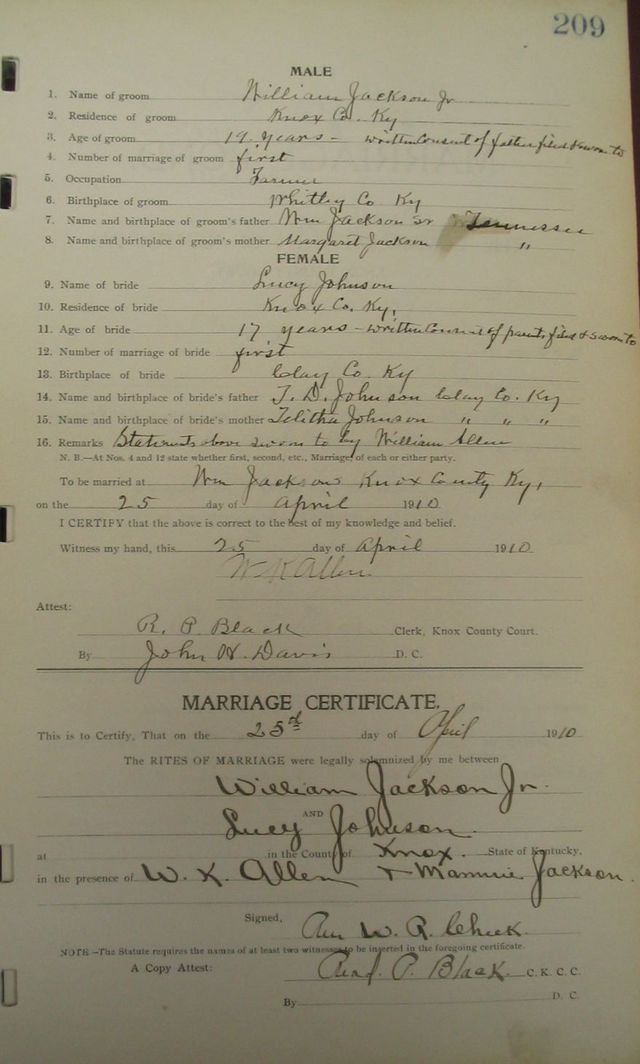 209
MALE
1. Name of groom William Jackson Jr
2. Residence of groom Knox Co. Ky
3. Age of groom 19 years - written consent of father filed & sworn to
4. Number of marriage of groom first
5. Occupation Farmer
6. Birthplace of groom Whitley Co Ky
7. Name and birthplace of groom's father Wm Jackson Sr Tennessee
8. Name and birthplace of groom's mother Margaret Jackson "
FEMALE
9. Name of bride Lucy Johnson
10. Residence of bride Knox Co. Ky,
11. Age of bride 17 years - written Consent of parents filed & sworn to
12. Number of marriage of bride first
13. Birthplace of bride Clay Co. Ky
14. Name and birthplace of bride's father T. D. Johnson Clay Co. Ky
15. Name and birthplace of bride's mother Telitha Johnson " " "
16. Remarks Statements above sworn to by William Allen
N. B.—At Nos. 4 and 12 state whether first, second, etc., Marriage of each or either party.
To be married at Wm Jacksons Knox County Ky,
on the 25 day of April 1910
I CERTIFY that the above is correct to the best of my knowledge and belief.
Witness my hand, this 25 day of April 1910
W K Allen
Attest:
R. P. Black Clerk, Knox County Court.
By John H. Davis D. C.
MARRIAGE CERTIFICATE.
This is to Certify, That on the 25th day of April 1910
The RITES OF MARRIAGE were legally solemnized by me between
William Jackson Jr.
AND
Lucy Johnson.
at in the County of Knox. State of Kentucky,
in the presence of W. K. Allen + Mammie Jackson.
Signed, W. R. Cheek.
NOTE—The Statute requires the names of at least two witnesses to be inserted in the foregoing certificate.
A Copy Attest: Read P. Black C. K. C. C.
By D. C.